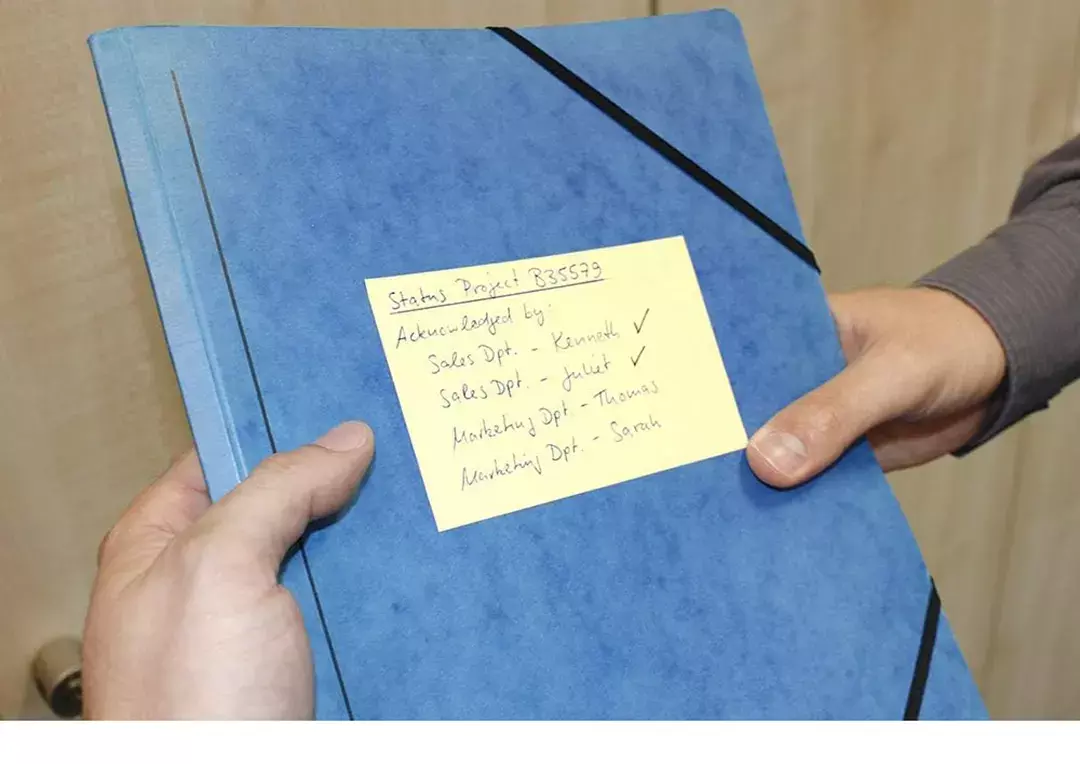 Status Project B35579
Acknowledged by:
Sales Dpt. - Kenneth ✓
Sales Dpt. - Juliet ✓
Marketing Dpt. - Thomas
Marketing Dpt. - Sarah